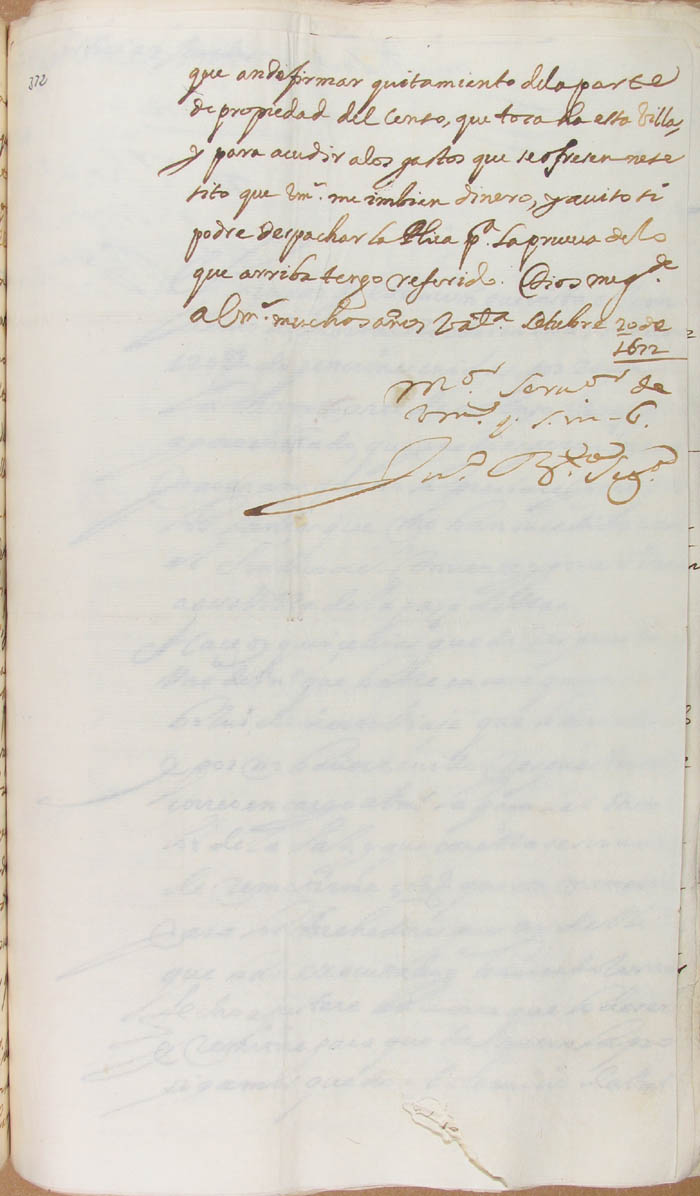 372
que an de firmar quitamiento dela parte
de propiedad del Censo, que toca ha esta Villa,
y para acudir alos gastos que se ofresen nese
sito que Vm.ᵈ me imbien dinero, y avito si
podre despachar la pᵃ. la prueva delo
que arriba tengo referido. Dios me gᵈᵉ.
a Vmᵈ. muchos años Valᵃ. Octubre 20 de
1672
Mᵒʳ. servᵒʳ de
Vmᵈ. q. s. m. b.